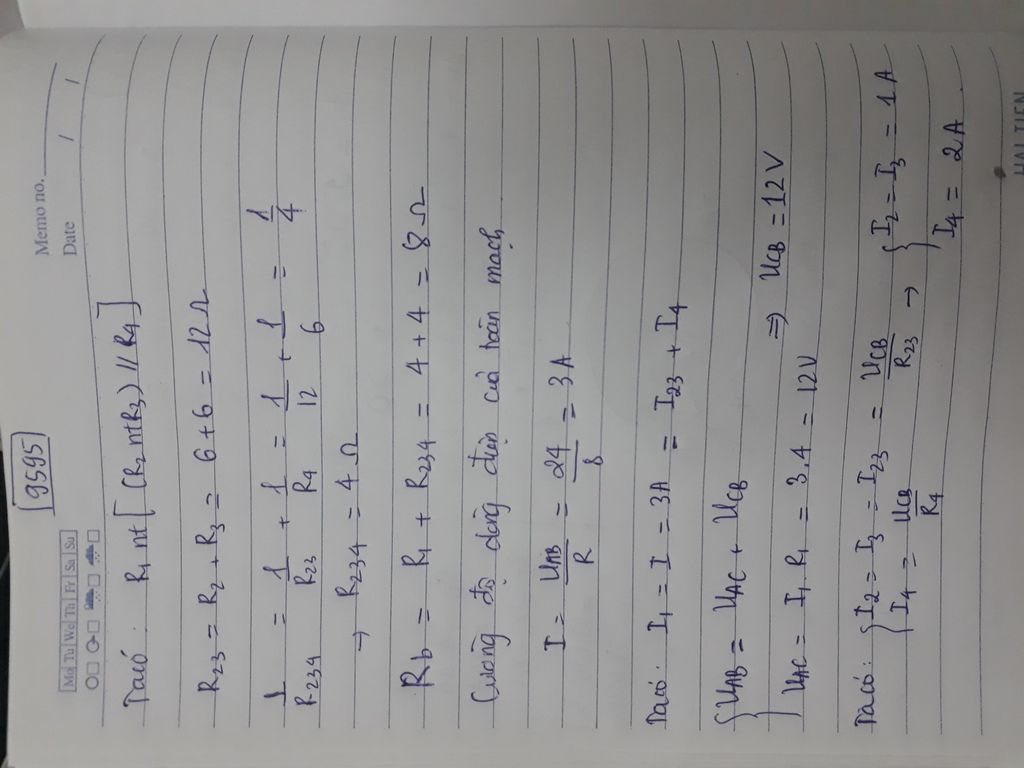 Memo no.
Mo Tu We Th Fr Sa Su
Date / /
9595
Ta có: R1 nt [(R2 nt R3) // R4]
R23 = R2 + R3 = 6 + 6 = 12 Ω
1/R234 = 1/R23 + 1/R4 = 1/12 + 1/6 = 1/4
→ R234 = 4 Ω
Rb = R1 + R234 = 4 + 4 = 8 Ω
Cường độ dòng điện của toàn mạch
I = UAB/R = 24/8 = 3A
Ta có: I1 = I = 3A = I23 + I4
{ UAB = UAC + UCB
UAC = I1.R1 = 3.4 = 12V ⇒ UCB = 12V
Ta có: { I2 = I3 = I23 = UCB/R23 → { I2 = I3 = 1A
I4 = UCB/R4 I4 = 2A
HẢI TIẾN